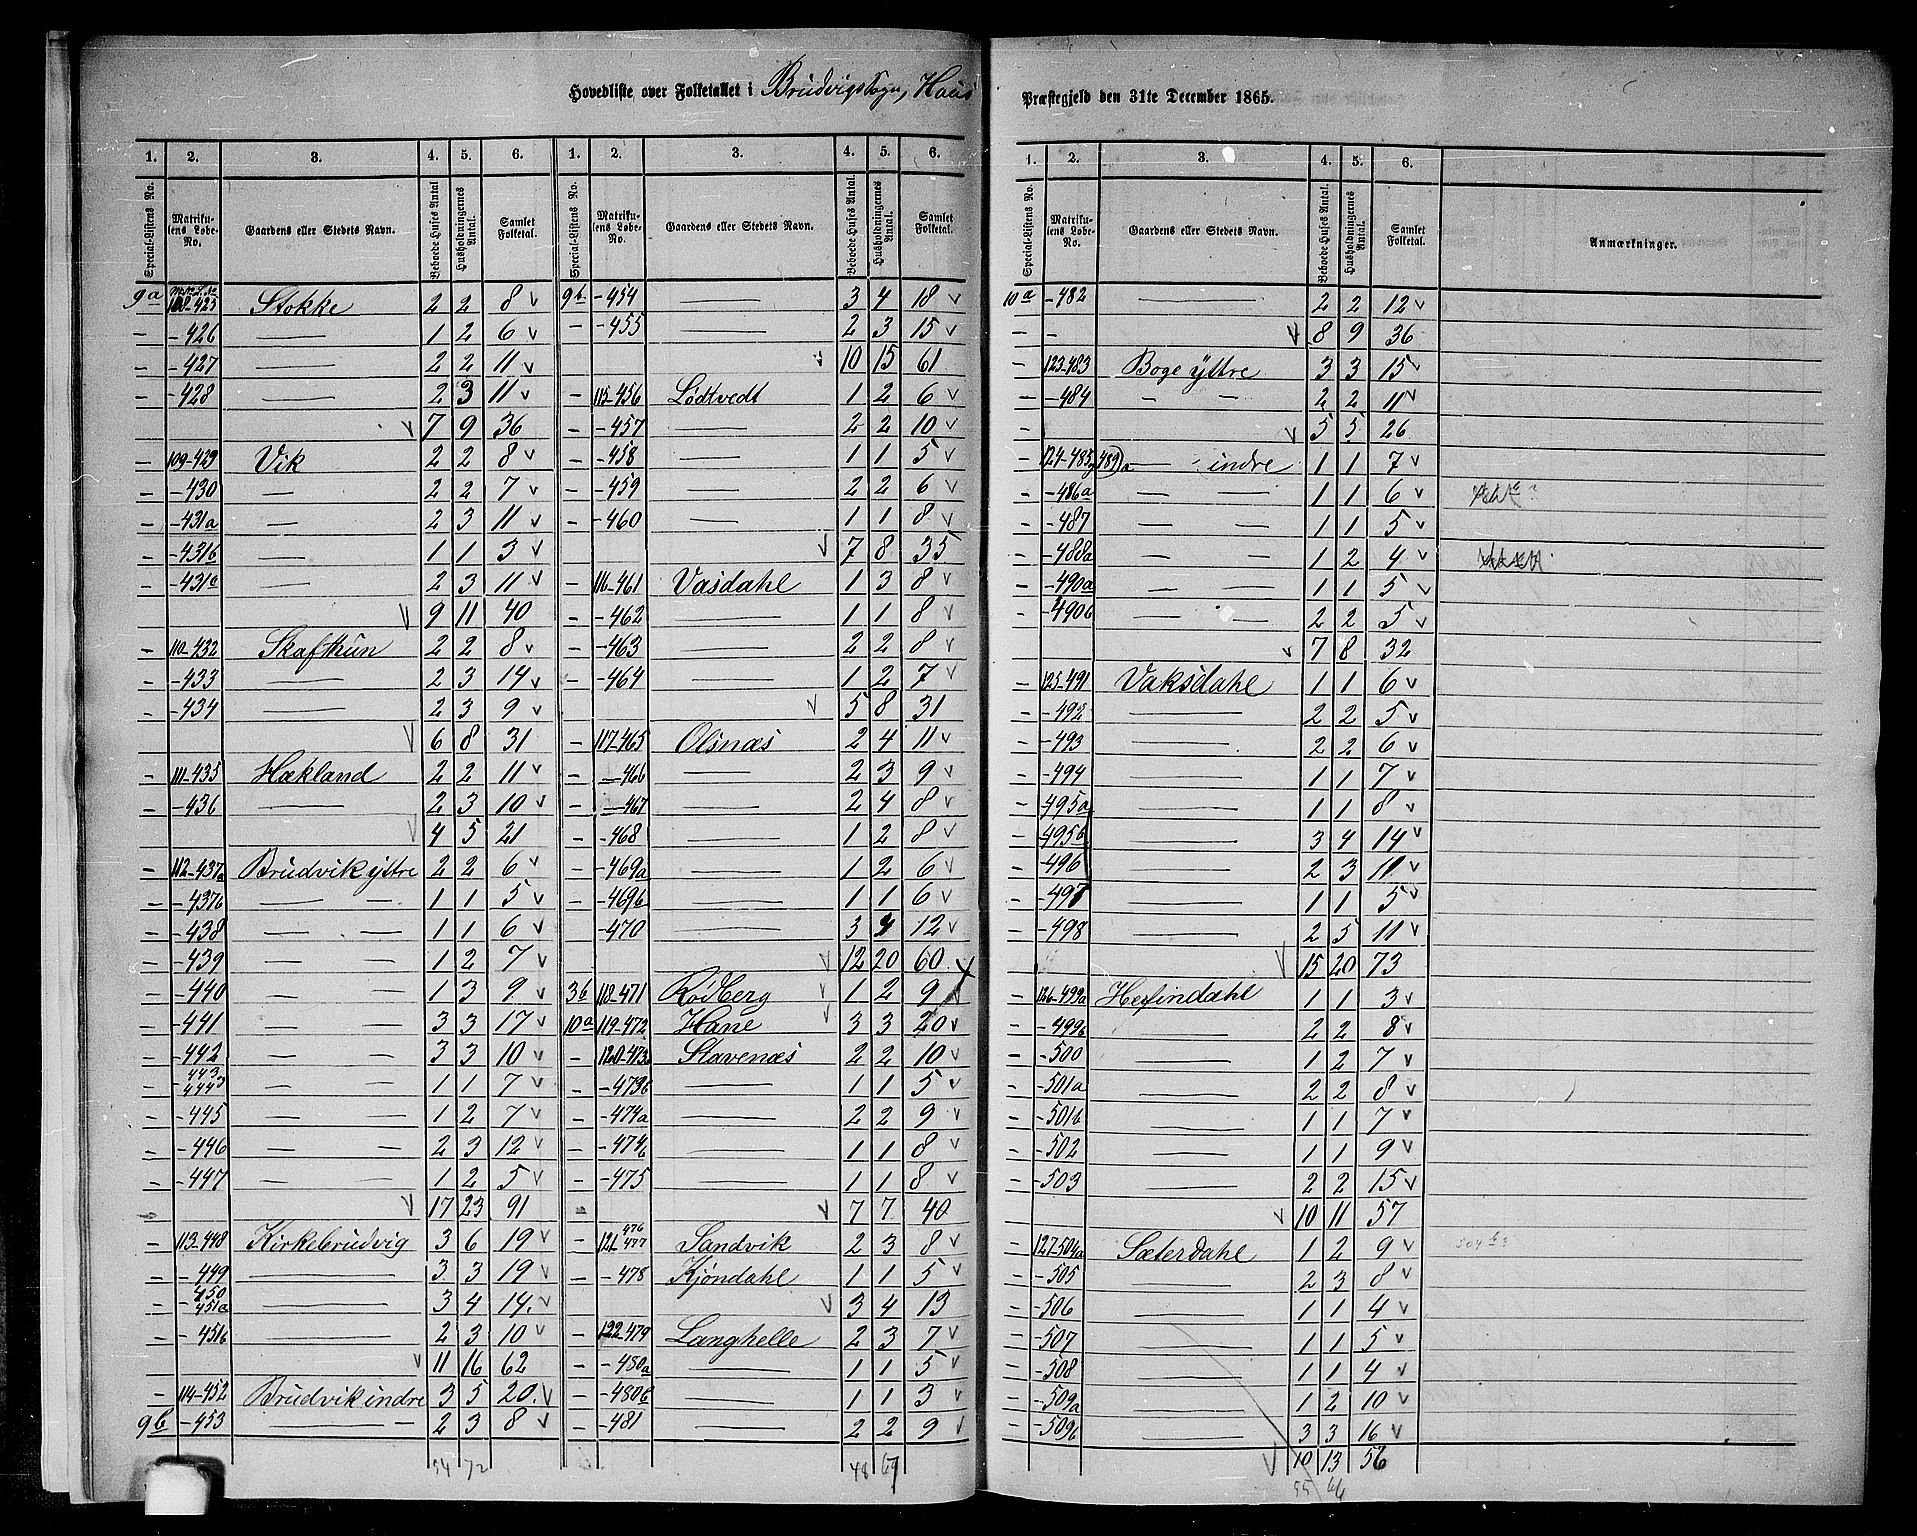 Hovedliste over Folketallet i Brudvigs Sogn, Haus Præstegjeld den 31te December 1865.
1. 2. 3. 4. 5. 6. 1. 2. 3. 4. 5. 6.
Special-Listens No. Matrikulens Løbe-No. Gaardens eller Stedets Navn. Beboede Huses Antal Husholdningernes Antal. Samlet Folketal. Special-Listens No. Matrikulens Løbe-No. Gaardens eller Stedets Navn. Beboede Huses Antal. Husholdningernes Antal. Samlet Folketal.
9a 108-425 Stokke 2 2 8 v
- -426 — 1 2 6 v
- -427 — 2 2 11 v
- -428 — 2 3 11 v
v 7 9 36
- 109-429 Vik 2 2 8 v
- -430 — 2 2 7 v
- -431a — 2 3 11 v
- -431b — 1 1 3 v
- -431c — 2 3 11 v
v 9 11 40
- 110-432 Skafthun 2 2 8 v
- -433 — 2 3 14 v
- -434 — 2 3 9 v
v 6 8 31
- 111-435 Hækland 2 2 11 v
- -436 — 2 3 10 v
v 4 5 21
- 112-437a Brudvik ytre 2 2 6 v
- -437b — — 1 1 5 v
- -438 — — 1 1 6 v
- -439 — — 1 2 7 v
- -440 — — 1 3 9 v
- -441 — — 3 3 17 v
- -442 — — 3 3 10 v
- -443 444 — — 1 1 7 v
- -445 — — 1 2 7 v
- -446 — — 2 3 12 v
- -447 — — 1 2 5 v
v 17 23 91
- 113-448 Kirkebrudvig 3 6 19 v
- -449 — 3 3 19 v
- -450 451a — 3 4 14 v
- -451b — 2 3 10 v
v 11 16 62
- 114-452 Brudvik indre 3 5 20 v
9b -453 — — 2 3 8 v
54 72
9b -454 — 3 4 18 v
- -455 — 2 3 15 v
v 10 15 61
- 115-456 Lødtvedt 1 2 6 v
- -457 — 2 2 10 v
- -458 — 1 1 5 v
- -459 — 2 2 6 v
- -460 — 1 1 8 v
v 7 8 35
- 116-461 Vasdahl 1 3 8 v
- -462 — 1 1 8 v
- -463 — 2 2 8 v
- -464 — 1 2 7 v
v 5 8 31
- 117-465 Olsnæs 2 4 11 v
- -466 — 2 3 9 v
- -467 — 2 4 8 v
- -468 — 1 2 8 v
- -469a — 1 2 6 v
- -469b — 1 1 6 v
-470 — 3 4 12 v
v 12 20 60
3b 118-471 Rødberg v 1 2 9 v
10a 119-472 Hane v 3 3 20 v
- 120-473a Stavenæs 2 2 10 v
- -473b — 1 1 5 v
- -474a — 2 2 9 v
- -474b — 1 1 8 v
- -475 — 1 1 8 v
v 7 7 40
- 121-476 477 Sandvik 2 3 8 v
- -478 Kjøndahl 1 1 5 v
v 3 4 13
- 122-479 Langhelle 2 3 7 v
- -480a — 1 1 5 v
- -480b — 1 1 3 v
- -481 — 2 2 9 v
48 69
1. 2. 3. 4. 5. 6.
Special-Listens No. Matrikulens Løbe-No. Gaardens eller Stedets Navn. Beboede Huses Antal. Husholdningernes Antal. Samlet Folketal. Anmærkninger.
10a -482 — 2 2 12 v
- - v 8 9 36
- 123-483 Boge yttre 3 3 15 v
- -484 — — 2 2 11 v
v 5 5 26
- 124-485, 489a — indre 1 1 7 v
- -486a — — 1 1 6 v
- -487 — — 1 1 5 v
- -488a — — 1 2 4 v
- -490a — — 1 1 5 v
- -490b — — 2 2 5 v
v 7 8 32
- 125-491 Vaksdahl 1 1 6 v
- -492 — 2 2 5 v
- -493 — 2 2 6 v
- -494 — 1 1 7 v
- -495a — 1 1 8 v
- -495b — 3 4 14 v
- -496 — 2 3 11 v
- -497 — 1 1 5 v
- -498 — 2 5 11 v
v 15 20 73
- 126-499a Hesfindahl 1 1 3 v
- -499b — 2 2 8 v
- -500 — 1 2 7 v
- -501a — 2 2 8 v
- -501b — 1 1 7 v
- -502 — 1 1 9 v
- -503 — 2 2 15 v
v 10 11 57
- 127-504a Sæterdahl 1 2 9 v 504b?
- -505 — 2 3 8 v
- -506 — 1 1 4 v
- -507 — 1 1 5 v
- -508 — 1 1 4 v
- -509a — 1 2 10 v
- -509b — 3 3 16 v
v 10 13 56
55 66